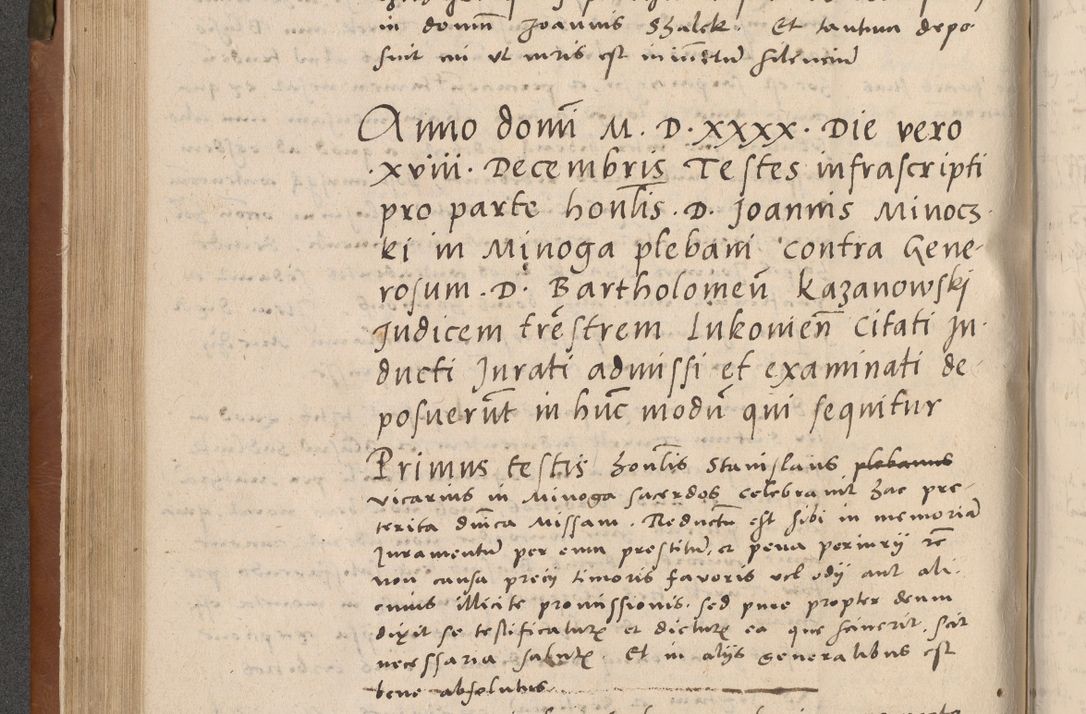 in domũ Joannis Shalek. Et tantum depo
suit cui ut iuris est iniũctũ silenciũ
Anno domĩ M. D. XXXX. Die vero
.xviii. Decembris Testes infrascripti
pro parte honl̃is. D. Joannis Minocz
ki in Minoga plebani contra Gene-
rosum. D. Bartholomeũ Kazanowskj
Judicem trẽstrem Lukowieñ Citati In-
ducti Jurati admissi et examinati de
posuerũt in hũc modũ qui sequitur
Primus testis honl̃is Stanislaus plebanus
vicarius in Minoga sacerdos celebrauit hac pre-
terita dñica Missam. Reductũ est sibi in memoriã
Juramentũ per eum prestitũ, et pena periurij rc̃
non causa precij timoris fauoris vel odij aut ali-
cuius illicite promissionis. sed pure propter deum
dixit se testificaturũ et dicturũ ea que sciuerit. scit
necessaria salutẽ. Et in alijs generalibus est
bene absolutus